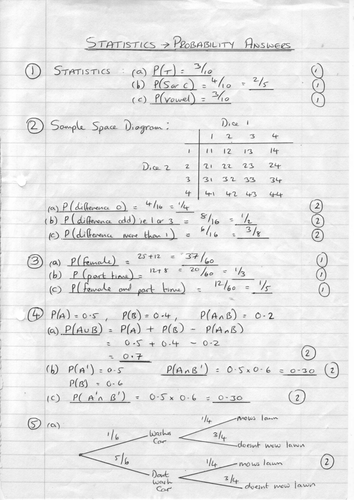 STATISTICS → PROBABILITY ANSWERS
① STATISTICS : (a) P(T) = 3/10 ①
(b) P(S or C) = 4/10 = 2/5 ①
(c) P(vowel) = 3/10 ①
② Sample Space Diagram : Dice 1
1 2 3 4
1 11 12 13 14
Dice 2 2 21 22 23 24
3 31 32 33 34
4 41 42 43 44
(a) P(difference 0) = 4/16 = 1/4 ②
(b) P(difference odd) ie 1 or 3 = 8/16 = 1/2 ②
(c) P(difference more than 1) = 6/16 = 3/8 ②
③ (a) P(female) = 25+12 = 37/60 ①
(b) P(part time) = 12+8 = 20/60 = 1/3 ①
(c) P(female and part time) = 12/60 = 1/5 ①
④ P(A) = 0.5 , P(B) = 0.4 , P(A∩B) = 0.2
(a) P(A∪B) = P(A) + P(B) - P(A∩B)
= 0.5 + 0.4 - 0.2
= 0.7 ②
(b) P(A') = 0.5 P(A∩B') = 0.5 x 0.6 = 0.30 ②
P(B) = 0.6
(c) P(A'∩B') = 0.5 x 0.6 = 0.30 ②
⑤ (a) 1/4 mows lawn
1/6 Washs Car 3/4 doesnt mow lawn
5/6 Dont wash Car 1/4 mows lawn ②
3/4 doesnt mow lawn